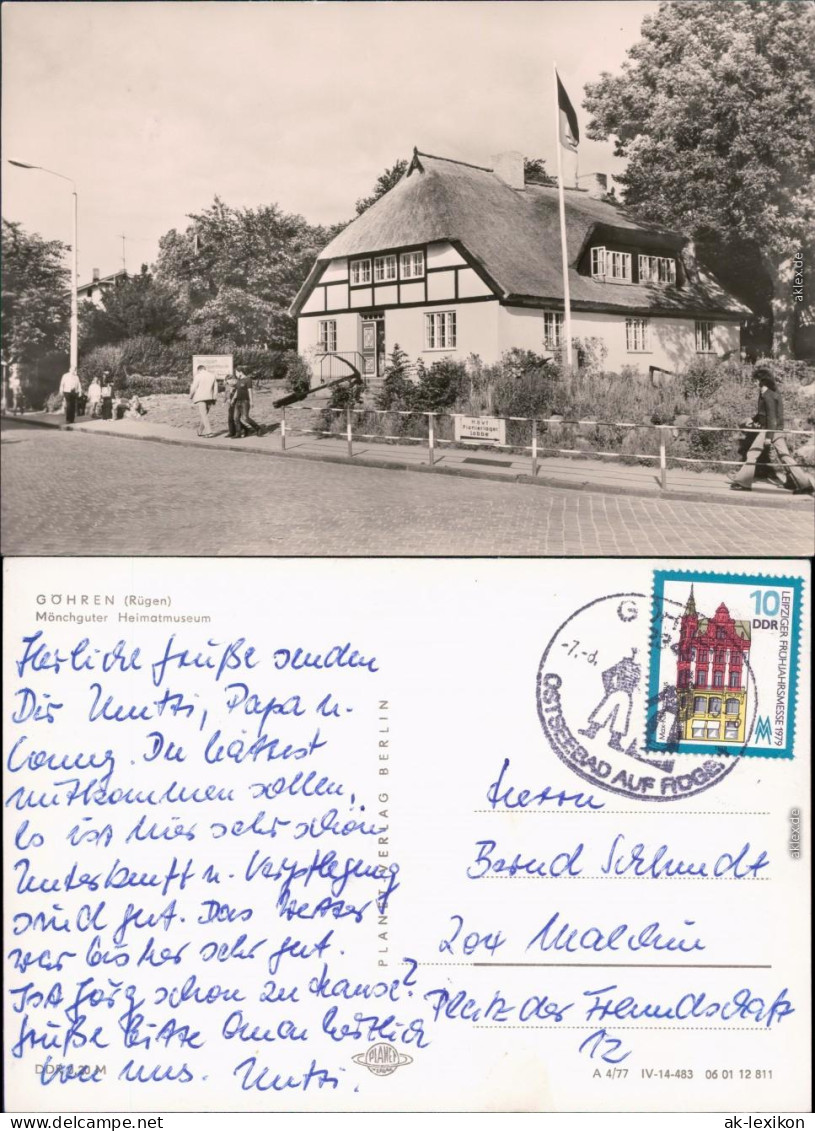 HOWT
Pionierlager
Lobbe
GÖHREN (Rügen)
Mönchguter Heimatmuseum
Herliche Grüße senden
Dir Mutti, Papa u.
Conny. Du hättest
mitkommen sollen,
Es ist hier sehr schön
Unterkunft u. Verpflegung
sind gut. Das Wetter
war bis her sehr gut.
Ist Jörg schon zu Hause?
Grüße bitte Oma herzlich
von uns. Mutti.
DDR 0,20 M
PLANET-VERLAG BERLIN
PLANET
VERLAG
OSTSEEBAD AUF RÜGEN
-7.-8.
10
DDR
LEIPZIGER FRÜHJAHRSMESSE 1979
Herrn
Bernd Schmidt
204 Malchin
Platz der Freundschaft
12
A 4/77 IV-14-483 06 01 12 811
akleix.de
akleix.de
www.ak-ansichtskarten.de
ak-lexikon